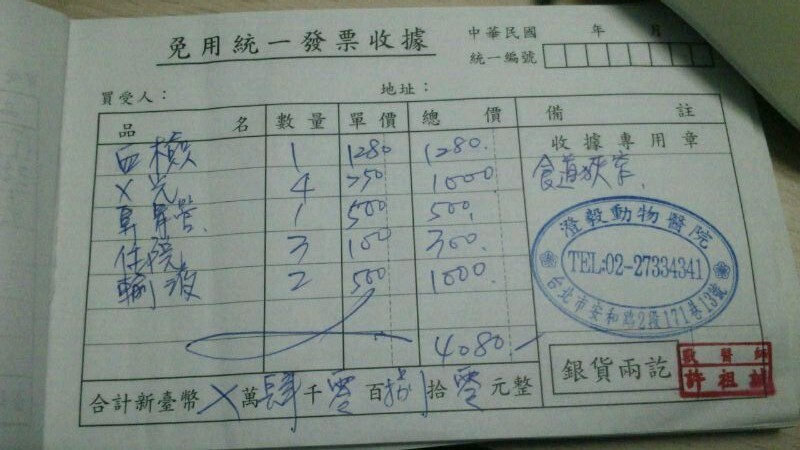 免用統一發票收據
中華民國 年 月
統一編號
買受人： 地址：
品名 數量 單價 總價 備註
收據專用章
血檢 1 1280 1280.
X光 4 250 1000.
鼻胃管. 1 500 500.
住院 3 100 300.
輸液 2 500 1000.
食道狹窄.
澄毅動物醫院
TEL:02-27334341
台北市安和路2段171巷13號
4080
合計新臺幣 X 萬 肆 千 零 百 捌 拾 零 元整
銀貨兩訖
獸醫師
許祖